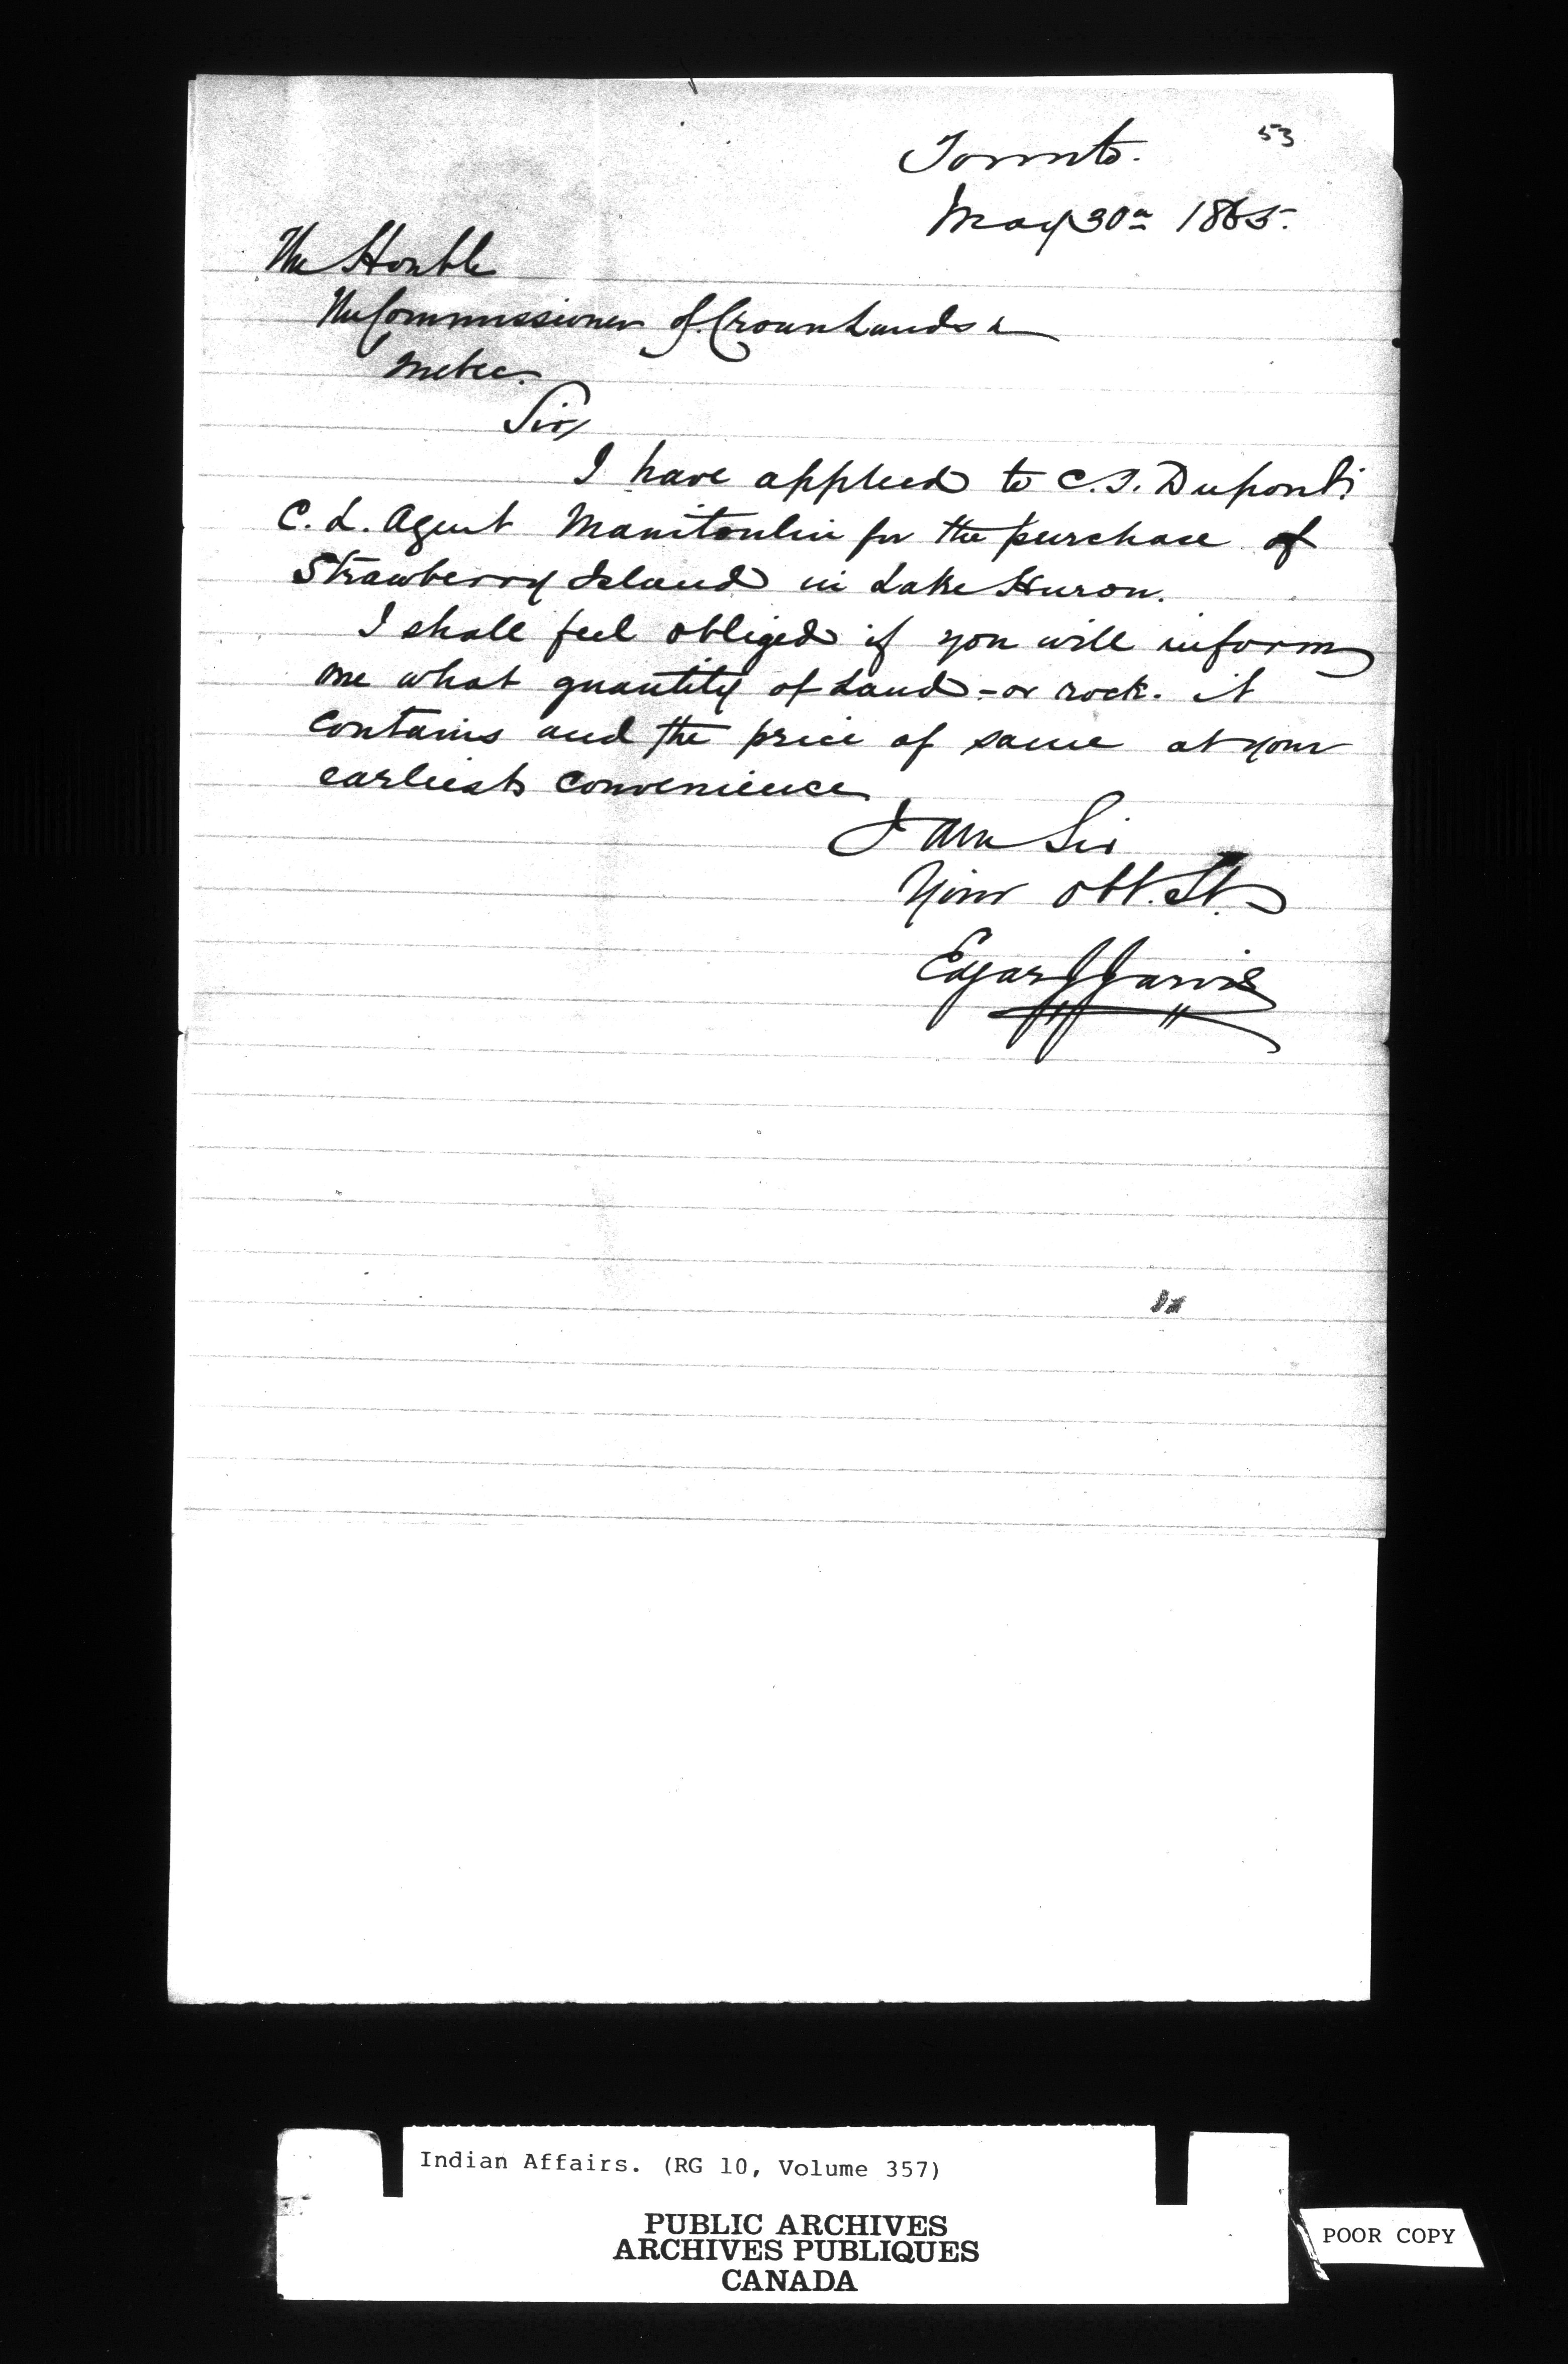 53
Toronto.
May 30th 1865.
The Honble
The Commissioner of Crown Lands &
Quebec.
Sir,
I have applied to C. T. Dupont
C. L. Agent Manitoulin for the purchase of
Strawberry Island in Lake Huron.
I shall feel obliged if you will inform
me what quantity of Land - or rock - it
contains and the price of same at your
earliest convenience
I am Sir
Your Obt. St.
Edgar J Jarvis
Indian Affairs. (RG 10, Volume 357)
PUBLIC ARCHIVES
ARCHIVES PUBLIQUES
CANADA
POOR COPY